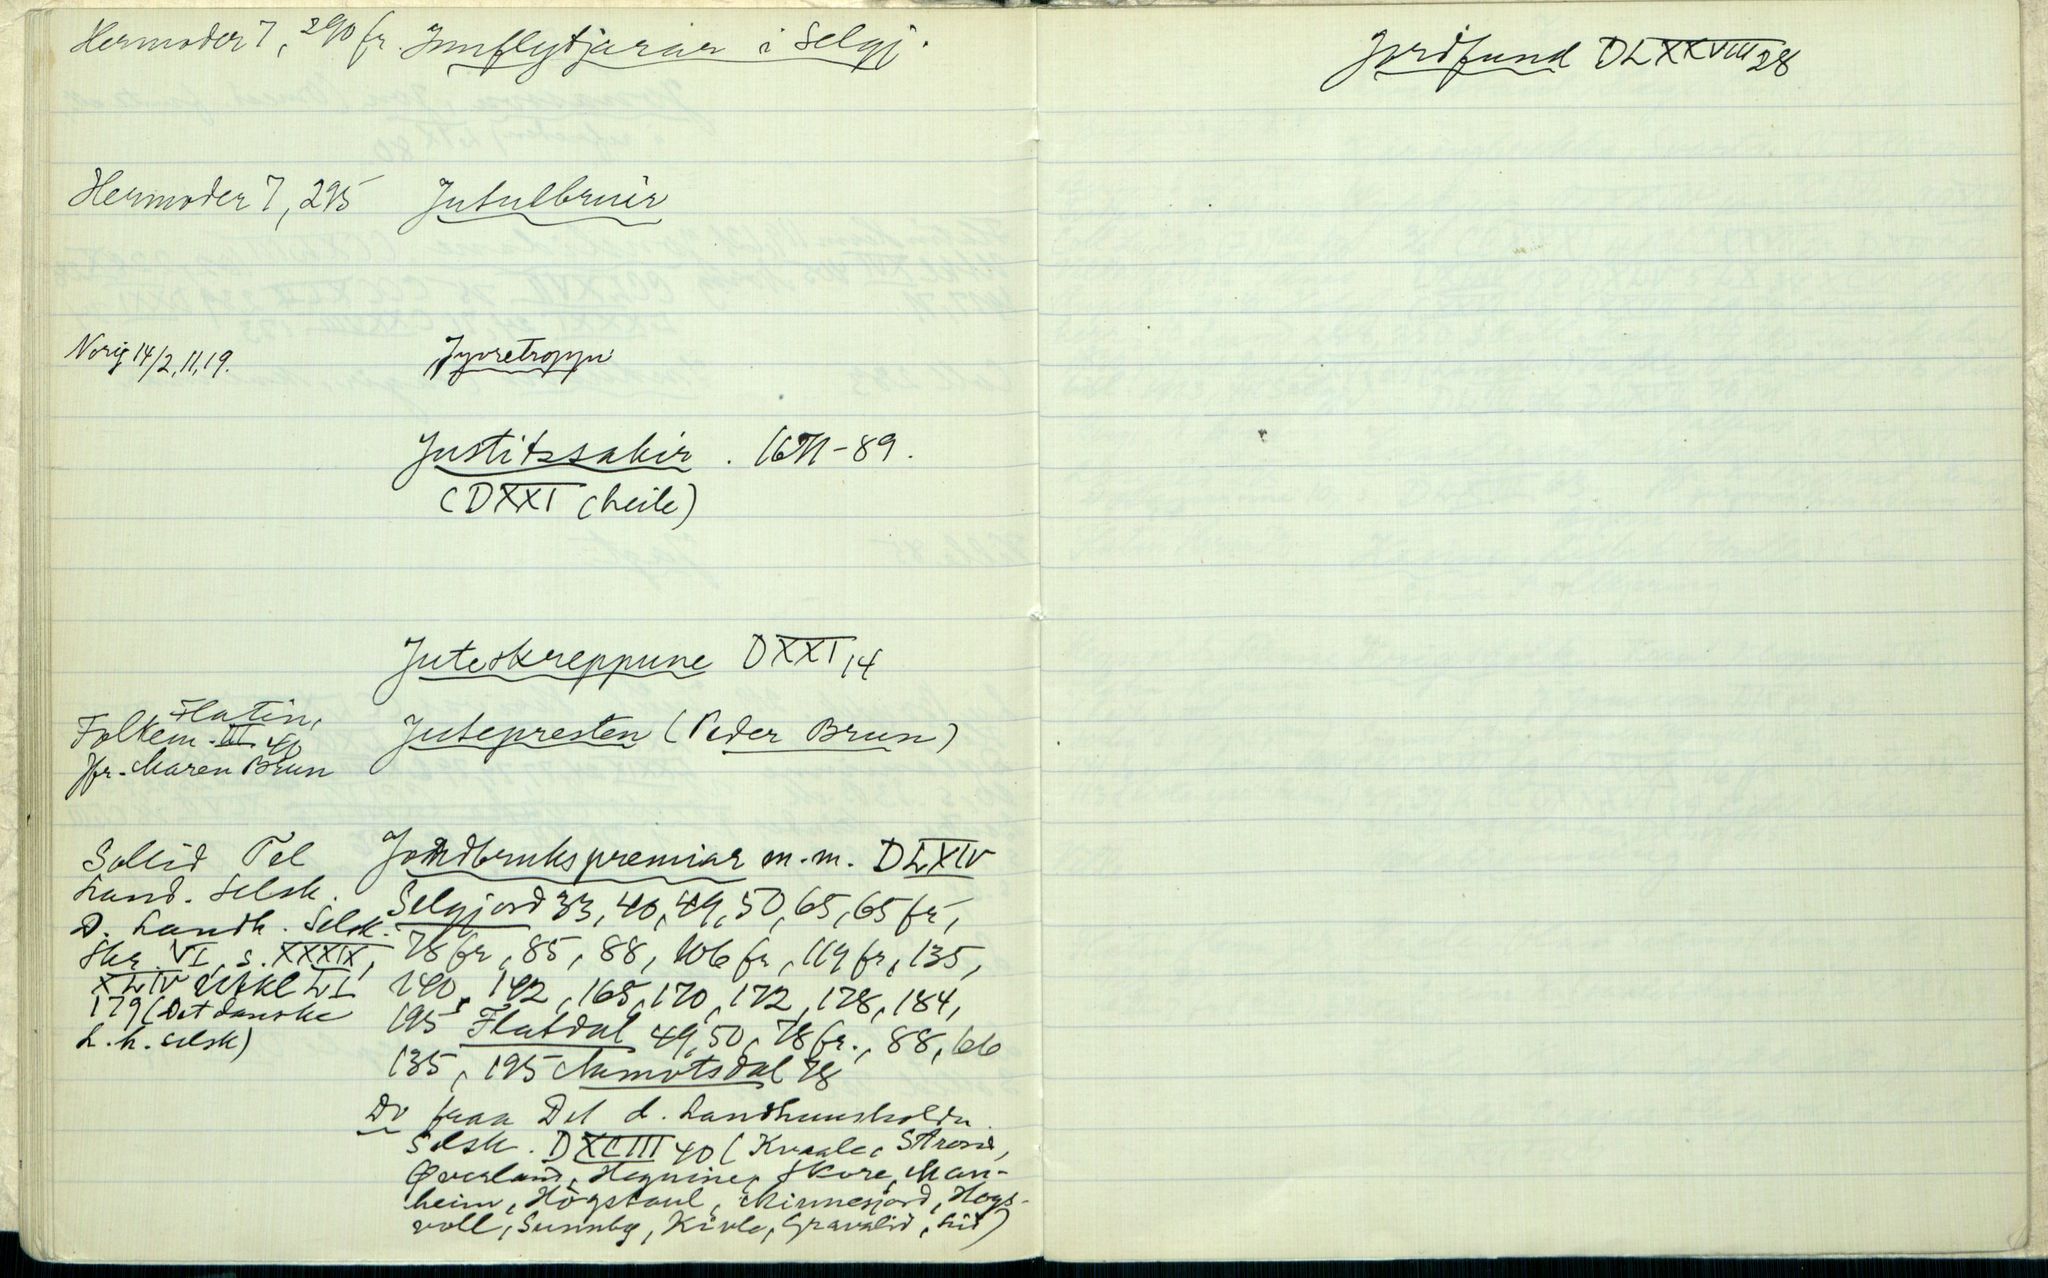 Hermoder 7, 290 fr. Innflytjarar i Selgj.
Hermoder 7, 295 Jutulbruir
Norig 14/2, 11, 19.
Justitssakir. 1671-89.
(DXXI (heile)
Juteskreppune DXXI 14
Flatin,
Folkem. III 40 Jutepresten (Peder Brun)
Jfr. Maren Brun
Sollid Tel Jordbrukspremiar m.m. DLXIV
Land. Selsk. Selgjord 33, 40, 49, 50, 65, 65 fr,
D. Landh. Selsk. 78 fr, 85, 88, 106 fr, 119 fr, 135,
Skr. VI, s. XXXIX, 140, 142, 165, 170, 172, 178, 184,
XLIV LI 195 Flatdal 49, 50, 78 fr., 88, 66
179 (Det danske 135, 195 Aamotsdal 78
L.h. selsk)
Do fraa Det d. Landhuusholdn.
Selsk. DXCIII 40 (Kvaale, Strond,
Øverland, Hegnine, Skore, Man-
heim, Högstaul, Minnesjord, Hogs-
voll, Sunnby, Kivle, Gravalid, Lid)
Jordfund DLXXVIII 28